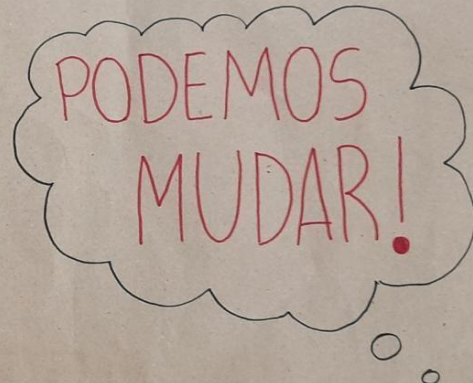 PODEMOS
MUDAR!